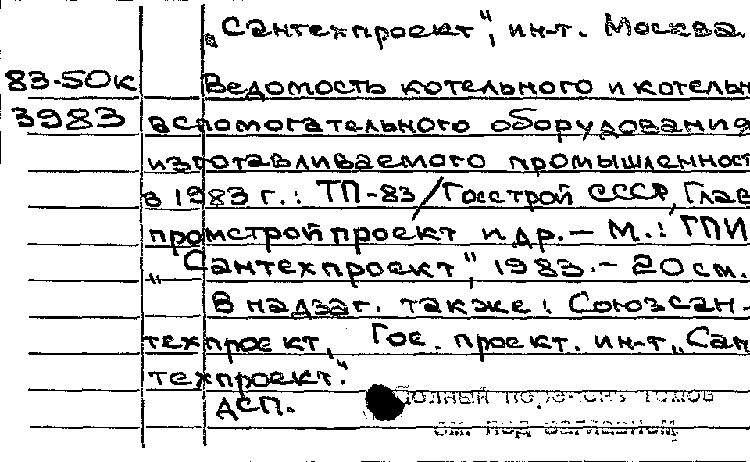 „Сантехпроект", ин-т. Москва.
83-50к Ведомость котельного и котельн
3983 вспомогательного оборудования
изготавливаемого промышленност
в 1983 г.: ТП-83/Госстрой СССР, Глав
промстройпроект и др. – М.: ГПИ
„Сантехпроект", 1983. – 20 см.
В надзаг. также: Союзсан-
техпроект, Гос. проект. ин-т „Сан
техпроект".
ДСП.
Полный перечень томов
см. под заглавием